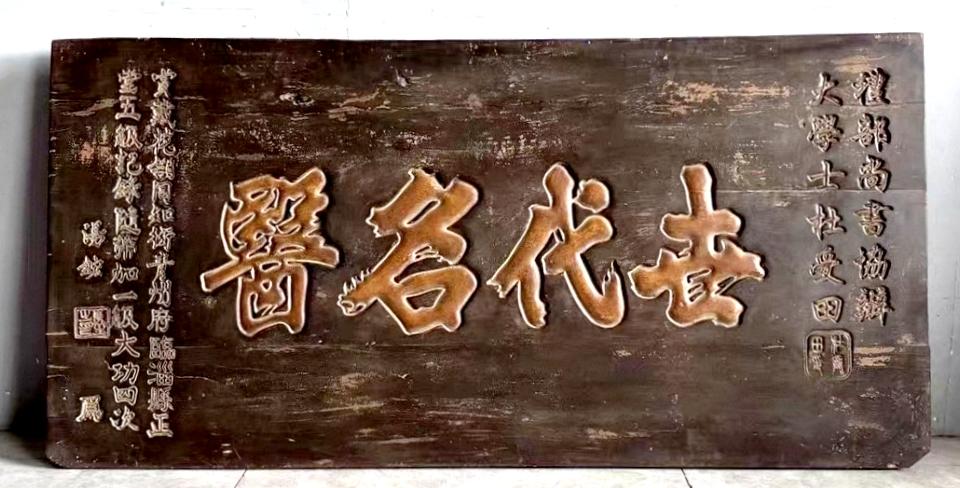 禮部尚書協辦
大學士杜受田
世代名醫
賞戴花翎同知銜青州府臨淄縣正
堂五級紀錄隨帶加一級大功四次
湯
為